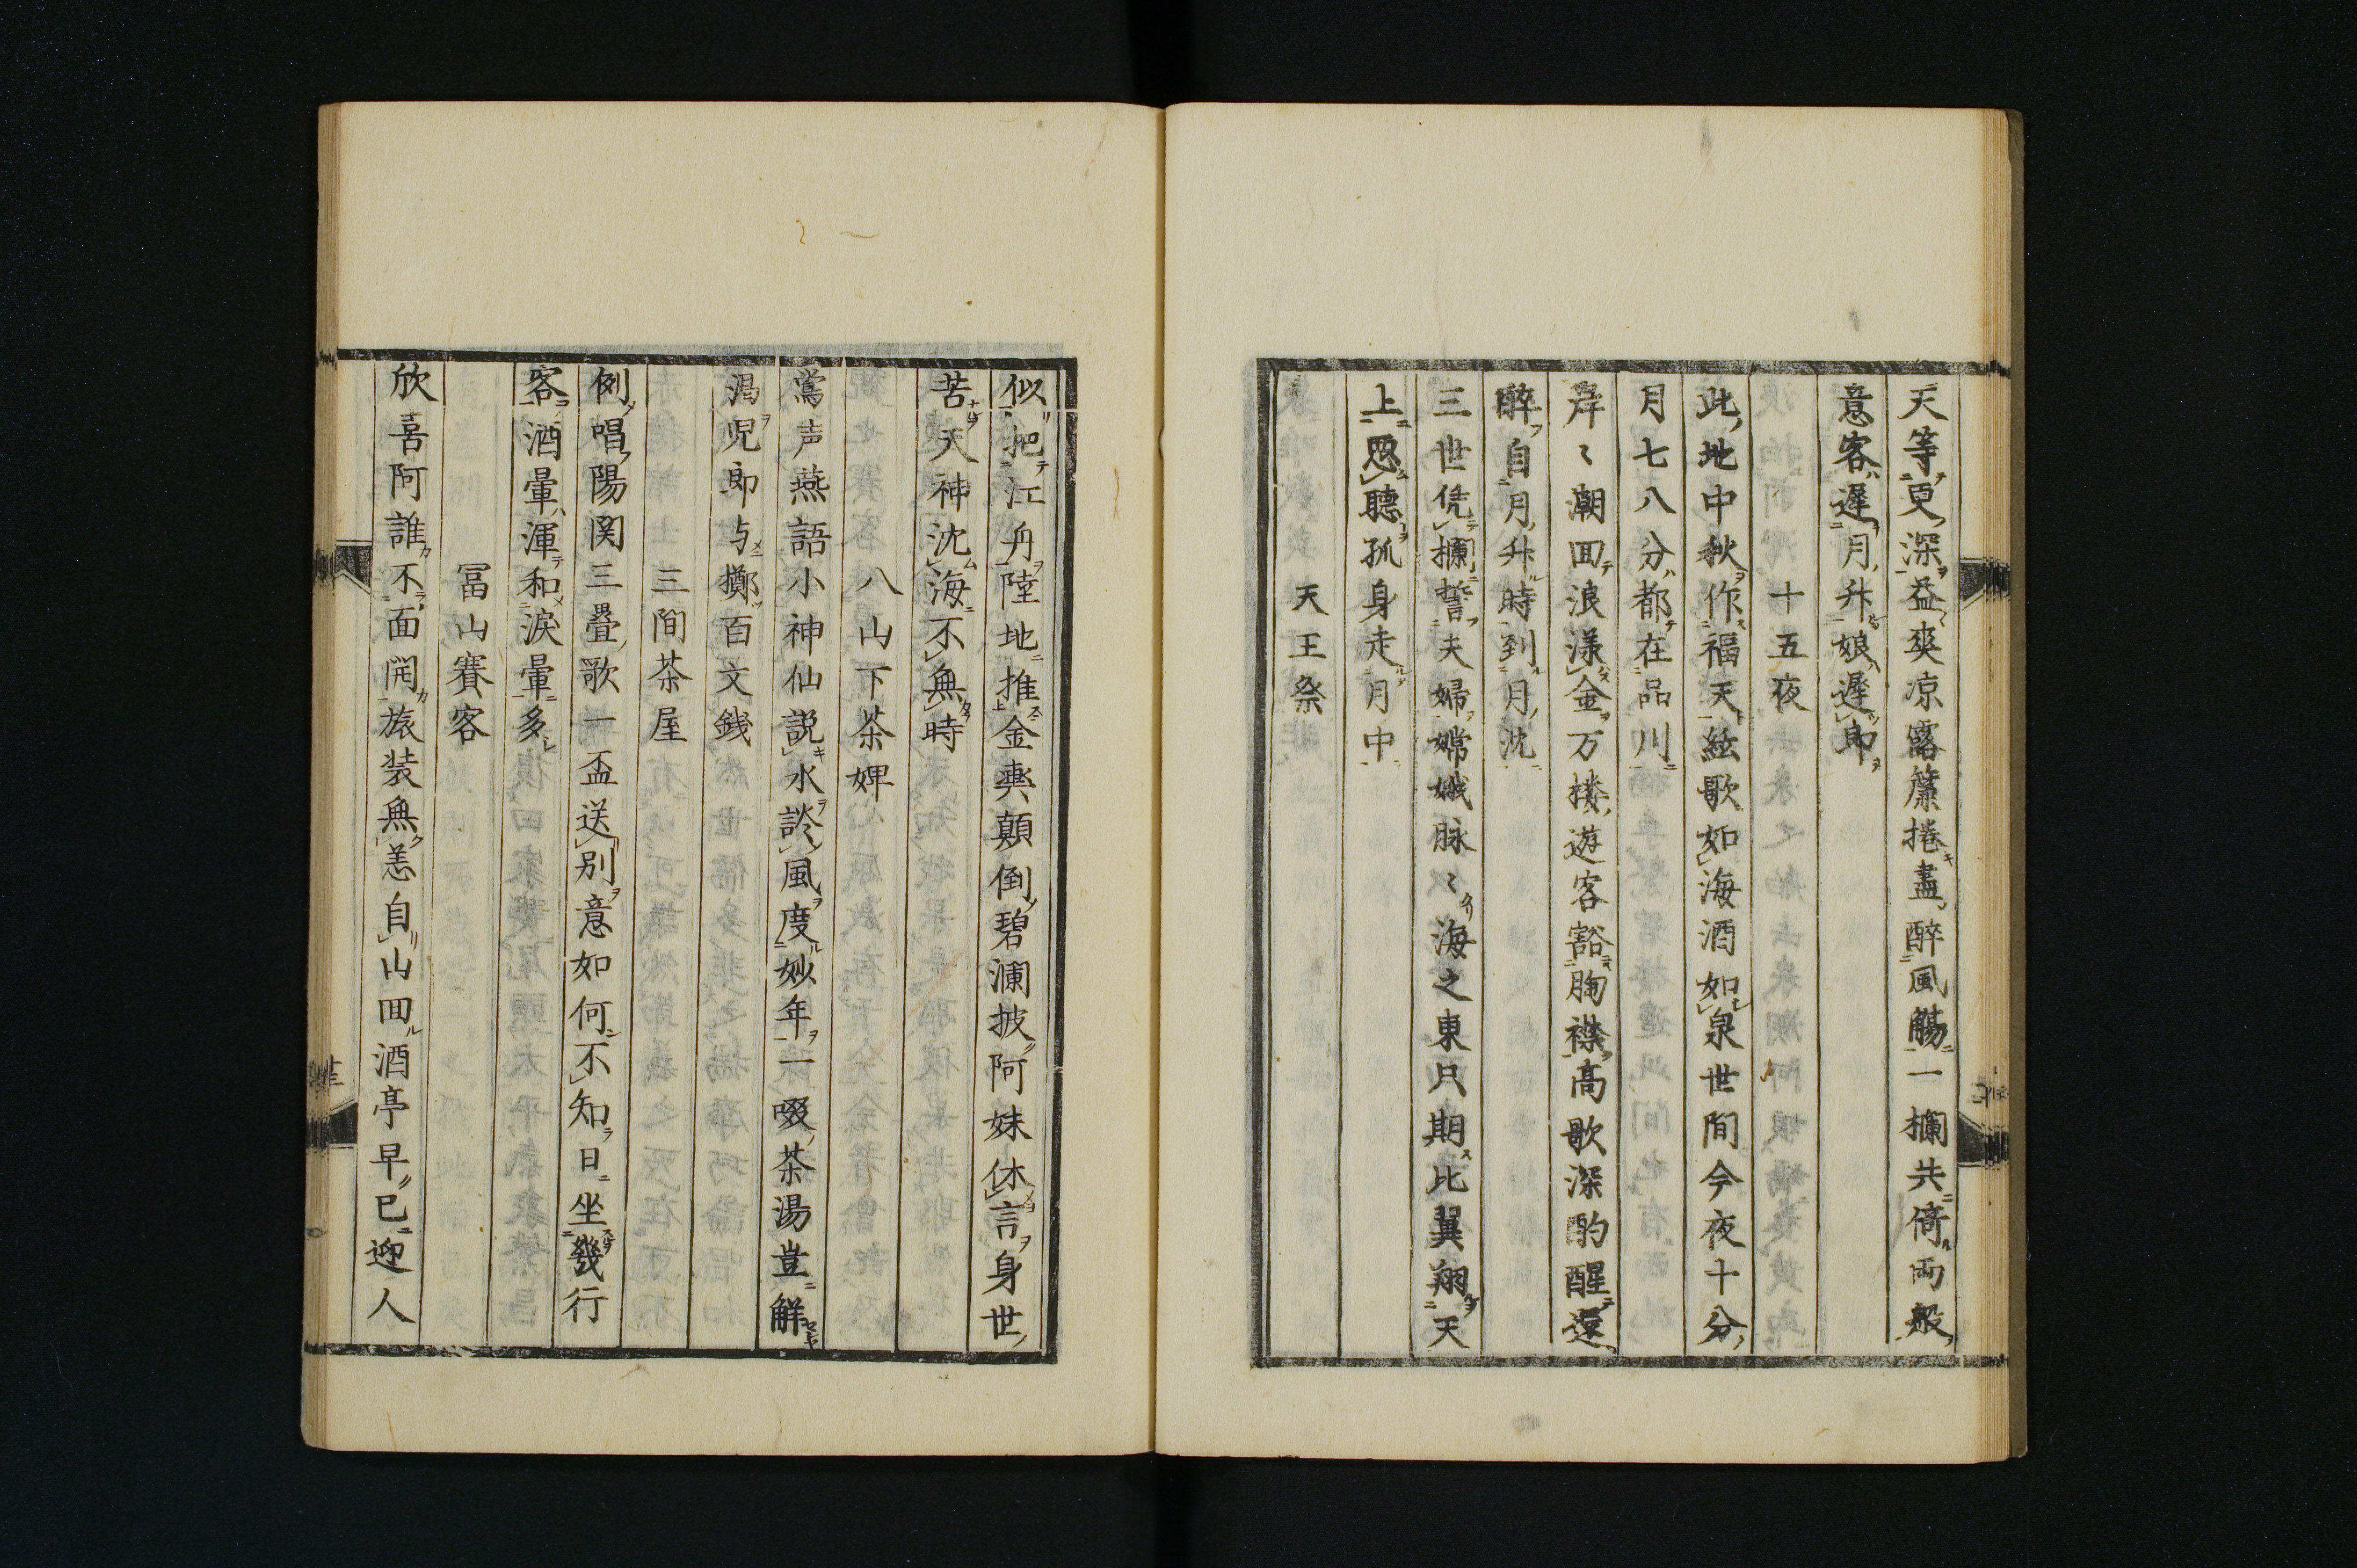 天等更深益爽凉露簾捲盡醉風觴一欄共倚両般
意客遲月升娘遲郎
十五夜
此地中秋作福天絃歌如海酒如泉世間今夜十分
月七八分都在品川
岸〻潮回浪漾金万楼遊客豁胸襟高歌深酌醒還
醉自月升時到月沈
三世凭欄誓夫婦嫦娥脉〻海之東只期比翼翔天
上忍聽孤身走月中
天王祭
似把江舟陸地推金輿顛倒碧瀾披阿妹休言身世
苦天神沈海不無時
八山下茶婢
鶯声燕語小神仙説水談風度妙年一啜茶湯豈解
渇児郎与擲百文銭
三間茶屋
例唱陽関三疊歌一盃送別意如何不知日坐幾行
客酒暈渾和涙暈多
冨山賽客
欣喜阿誰不面開旅装無恙自山回酒亭早已迎人